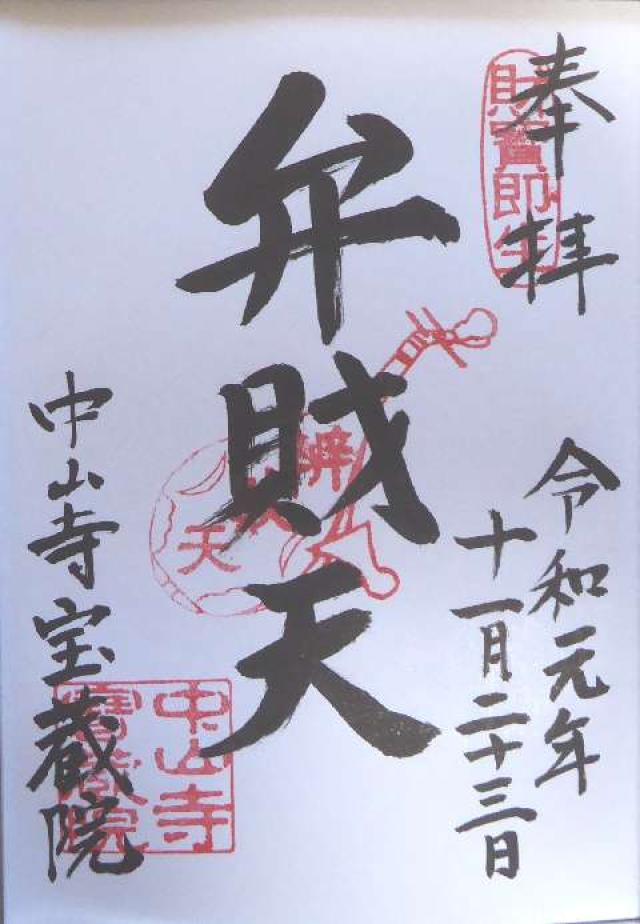 奉拝
財寶即生
令和元年
十一月二十三日
弁財天
辨
天
中山寺宝蔵院
中山寺
寶蔵院